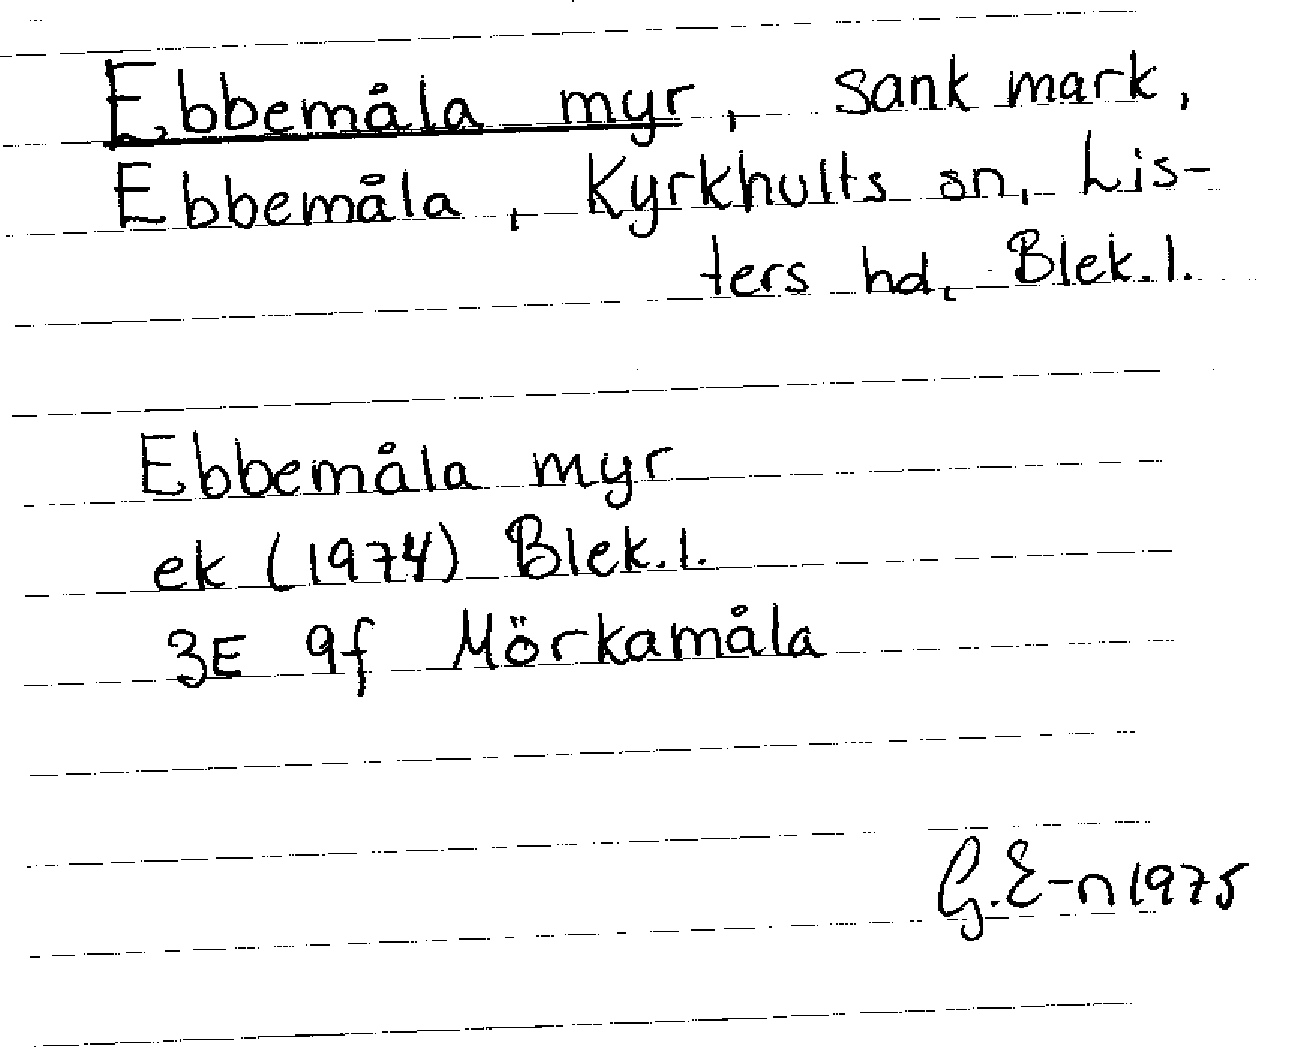 Ebbemåla myr, sank mark,
Ebbemåla, Kyrkhults sn, Lis-
ters hd, Blek.l.
Ebbemåla myr
ek (1974) Blek.l.
3E 9f Mörkamåla
G.E-n 1975